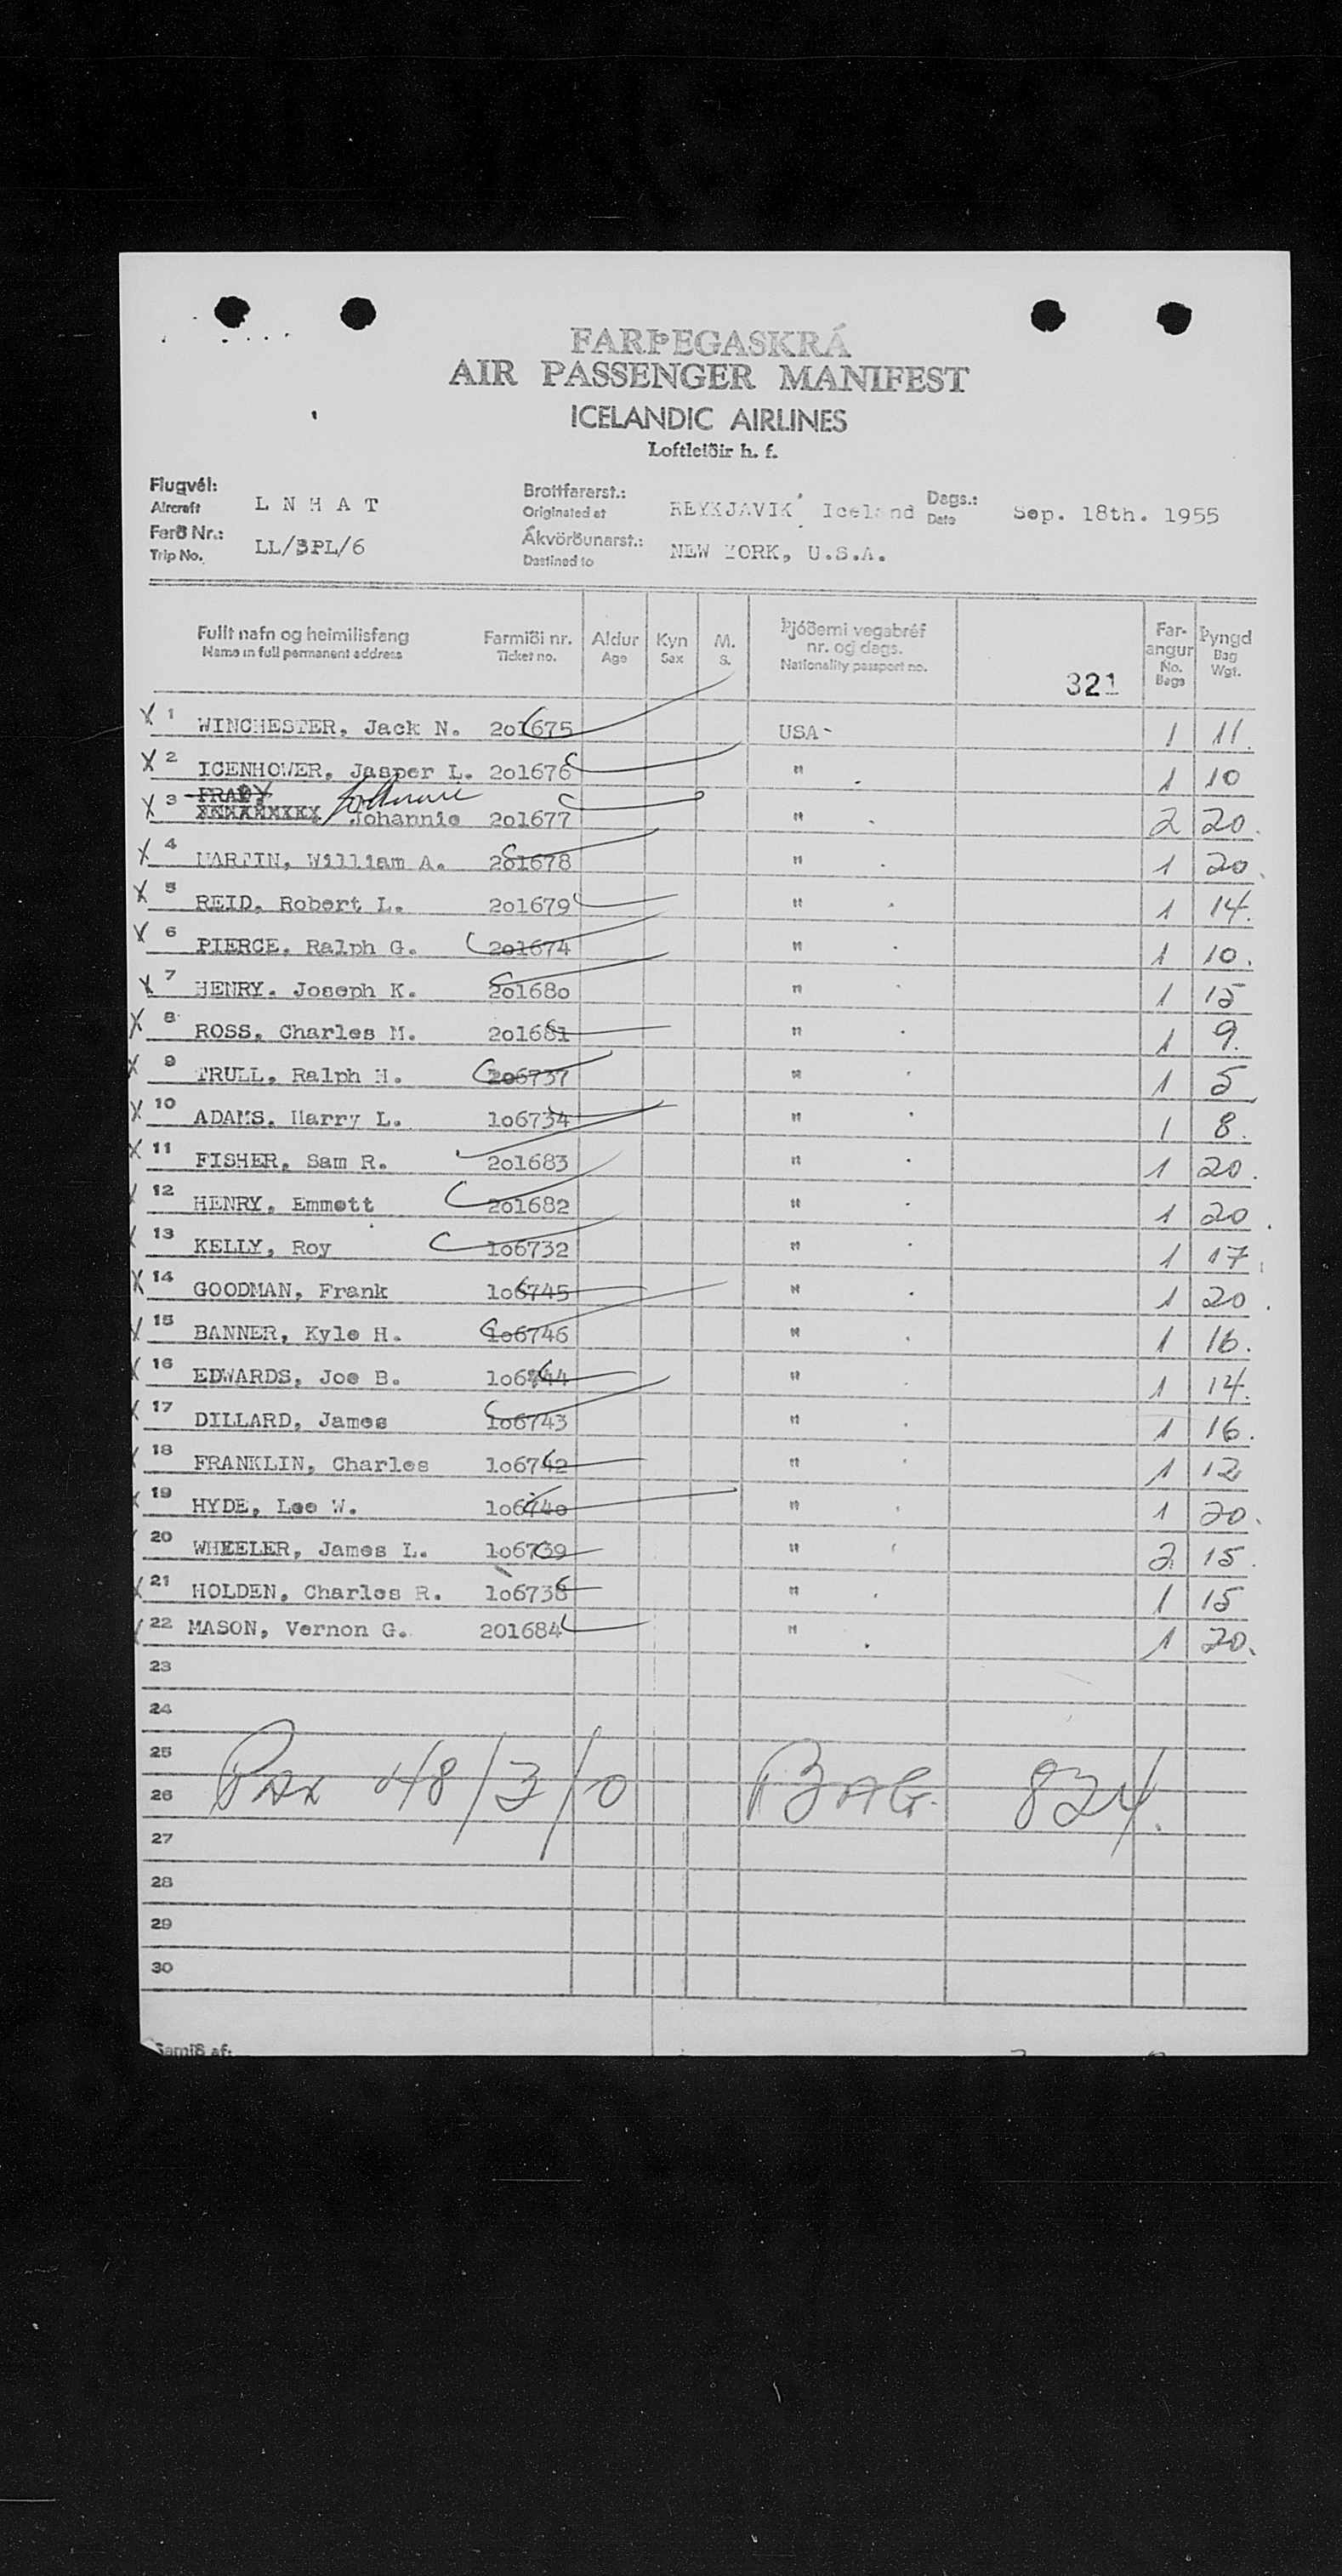 FARÞEGASKRÁ
AIR PASSENGER MANIFEST
ICELANDIC AIRLINES
Loftleiðir h. f.
Flugvél:
Aircraft L N H A T
Brottfararst.:
Originated at REYKJAVIK, Iceland
Dags.:
Date Sep. 18th. 1955
Ferð Nr.:
Trip No. LL/3PL/6
Ákvörðunarst.:
Destined to NEW YORK, U.S.A.
Fullt nafn og heimilisfang
Name in full permanent address
Farmiði nr.
Ticket no.
Aldur
Age
Kyn
Sex
M.
S.
Þjóðerni vegabréf
nr. og dags.
Nationality passport no.
321
Far-
angur
No.
Bags
Þyngd
Bag
Wgt.
X 1 WINCHESTER, Jack N. 201675 USA- 1 11.
X 2 ICENHOWER, Jasper L. 201676 " 1 10
FRADY,
X 3 Johannie 201677 " 2 20.
X 4 MARTIN, William A. 201678 " 1 20.
X 5 REID, Robert L. 201679 " 1 14.
X 6 PIERCE, Ralph G. 201674 " 1 10.
X 7 HENRY. Joseph K. 201680 " 1 15
X 8 ROSS, Charles M. 201681 " 1 9.
X 9 TRULL, Ralph H. 206737 " 1 5
X 10 ADAMS. Harry L. 106734 " 1 8.
X 11 FISHER, Sam R. 201683 " 1 20.
12 HENRY, Emmett 201682 " 1 20.
13 KELLY, Roy 106732 " 1 17.
X 14 GOODMAN, Frank 106745 " 1 20.
15 BANNER, Kyle H. 106746 " 1 16.
16 EDWARDS, Joe B. 106744 " 1 14.
17 DILLARD, James 106743 " 1 16.
18 FRANKLIN, Charles 106742 " 1 12
19 HYDE, Lee W. 106740 " 1 20.
20 WHEELER, James L. 106739 " 2 15.
21 HOLDEN, Charles R. 106738 " 1 15
22 MASON, Vernon G. 201684 " 1 20.
23
24
25
Pax 48/3/0 BAG. 824.
26
27
28
29
30
Samið af: